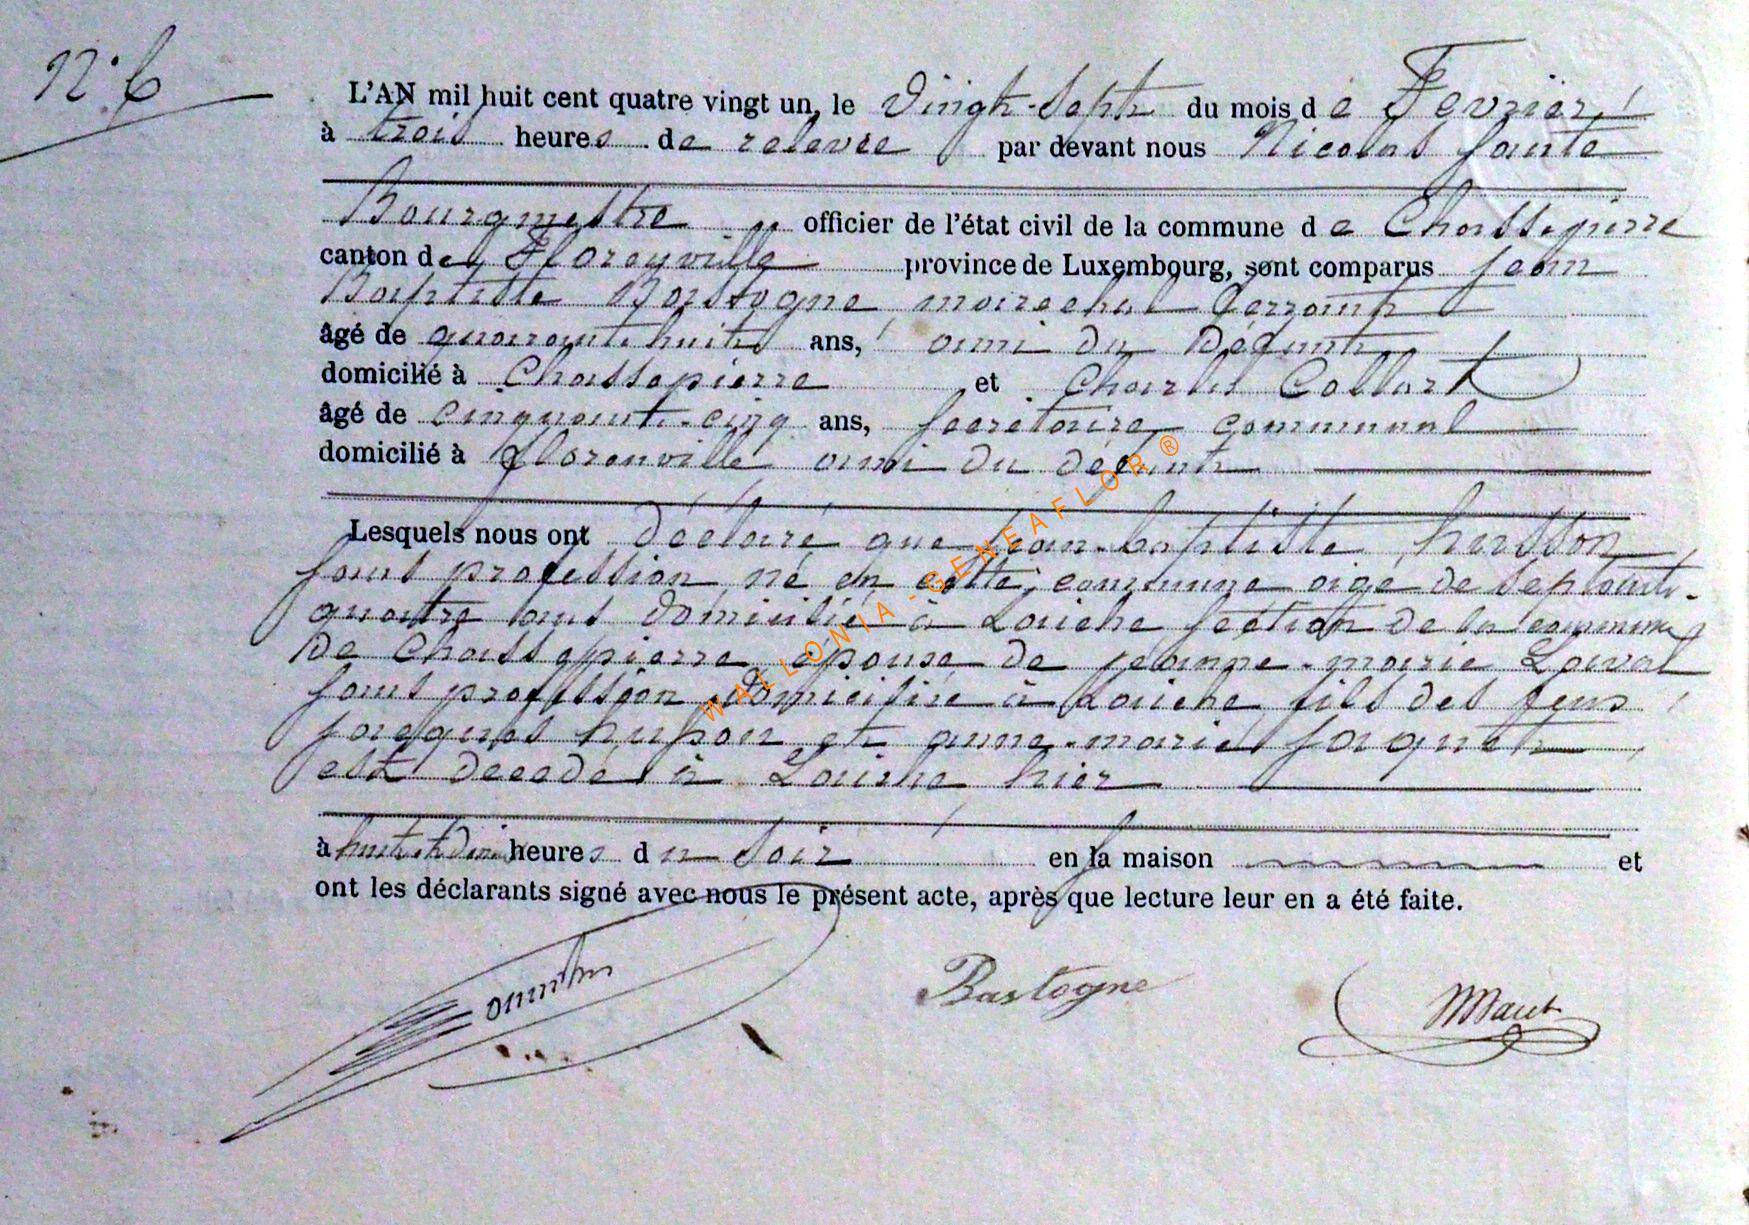 N° 6
L'AN mil huit cent quatre vingt un, le vingt-sept du mois de Fevrier
à trois heures de relevée par devant nous Nicolas
Bourgmestre officier de l'état civil de la commune de Chassepierre
canton de Florenville province de Luxembourg, sont comparus Jean
Baptiste Bastogne marechal ferrant
âgé de quarante huit ans, ami du défunt
domicilié à Chassepierre et Charles Collart
âgé de cinquante-cinq ans, secretaire communal
domicilié à florenville ami du défunt
Lesquels nous ont déclaré que Jean-baptiste husson
sans profession né en cette commune agé de septante-
quatre ans domicilié à Laiche section de la commune
de Chassepierre epouse de jeanne-marie Laval
sans profession domiciliée à Laiche fils des feus
jacques husson et anne-marie jaquet
est decedé à Laiche hier
à huit et demie heures du soir en sa maison et
ont les déclarants signé avec nous le présent acte, après que lecture leur en a été faite.
Bastogne
WALLONIA-GENEAFLOR®